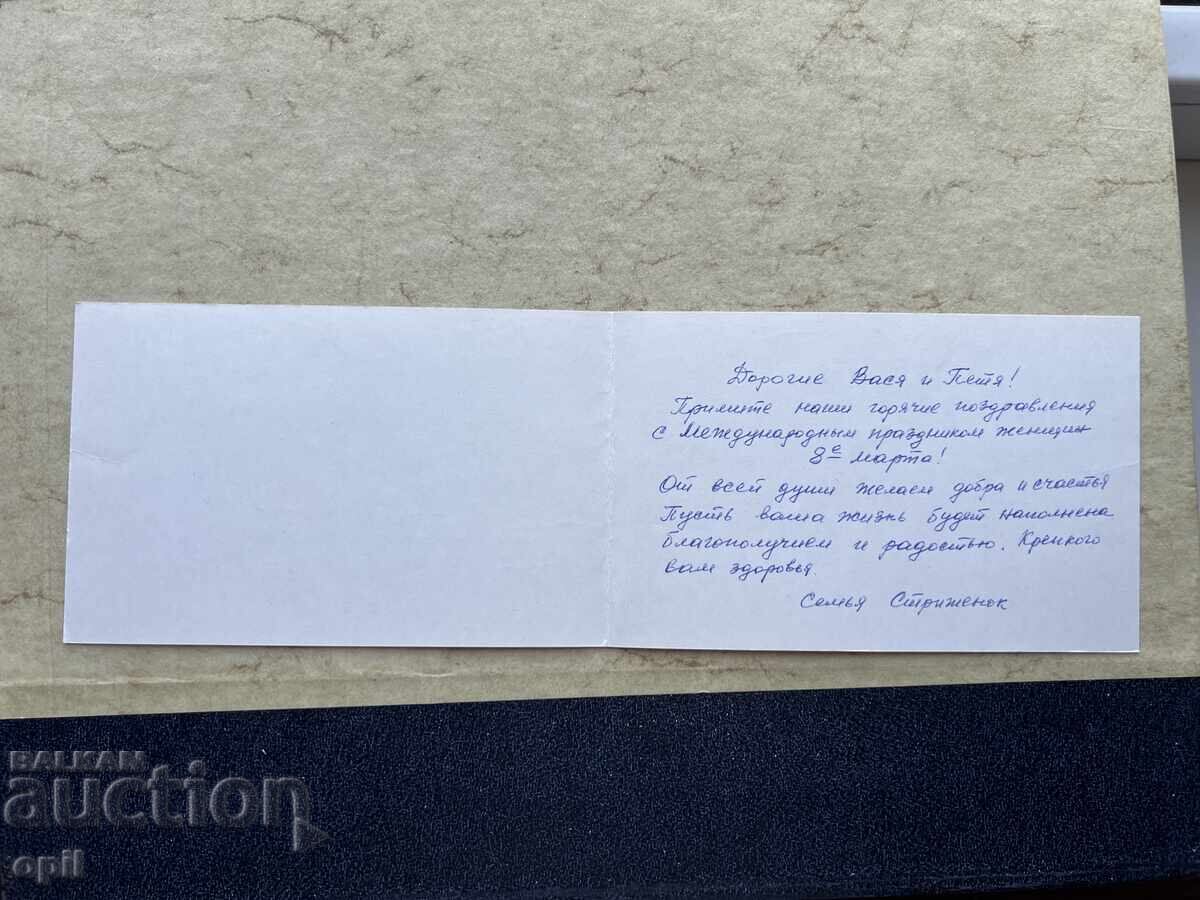 Дорогие Вася и Петя!
Примите наши горячие поздравления
с Международным праздником женщин
8е марта!
От всей души желаем добра и счастья
Пусть ваша жизнь будет наполнена
благополучием и радостью. Крепкого
вам здоровья.
Семья Стриженок
BALKAN
auction
opil